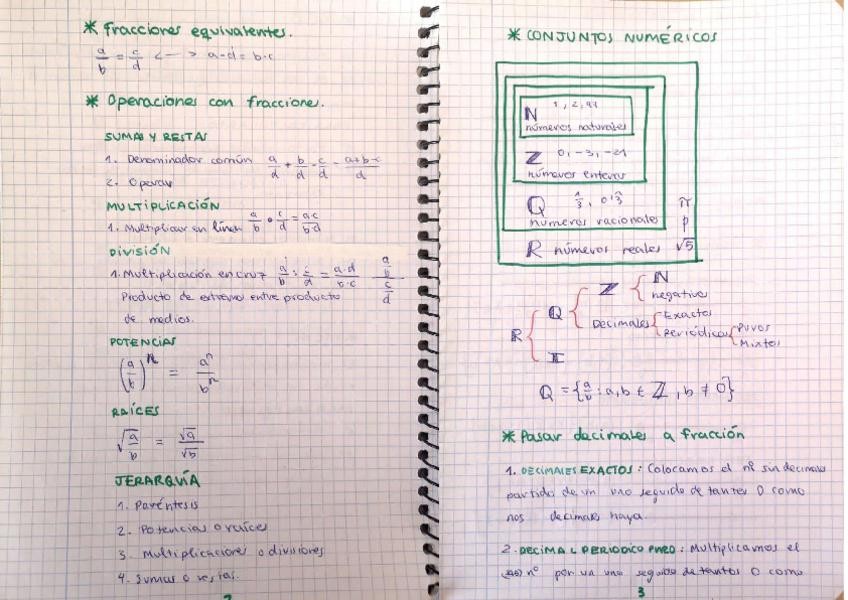 * Fracciones equivalentes.
a/b = c/d <—> a·d = b·c
* Operaciones con fraccione.
SUMAS Y RESTAS
1. Denominador común a/d + b/d - c/d = a+b-c/d
2. Operar
MULTIPLICACIÓN
1. Multiplicar en línea a/b · c/d = a·c/b·d
DIVISIÓN
1. Multiplicación en cruz a/b : c/d = a·d/b·c a/b / c/d
Producto de extremo entre producto
de medios.
POTENCIAS
(a/b)^n = a^n/b^n
RAÍCES
√a/b = √a/√b
JERARQUÍA
1. Paréntesis
2. Potencias o raíces
3. Multiplicaciones o divisiones
4. Sumas o restas.
* CONJUNTOS NUMÉRICOS
ℕ 1, 2, 94
números naturales
ℤ 0, -3, -21
números enteros
ℚ 1/3, 0'3̂
números racionales
π
ρ
ℝ números reales √5
ℝ { ℚ { ℤ { ℕ
negativos
Decimales { Exactos
Periódicos { Puros
Mixtos
𝕀
ℚ = {a/b : a, b ∈ ℤ, b ≠ 0}
* Pasar decimales a fracción
1. DECIMALES EXACTOS: Colocamos el nº sin decimales
partido de un uno seguido de tantos 0 como
nos decimales haya.
2. DECIMAL PERIODICO PURO: Multiplicamos el
nº por un uno seguido de tantos 0 como
3